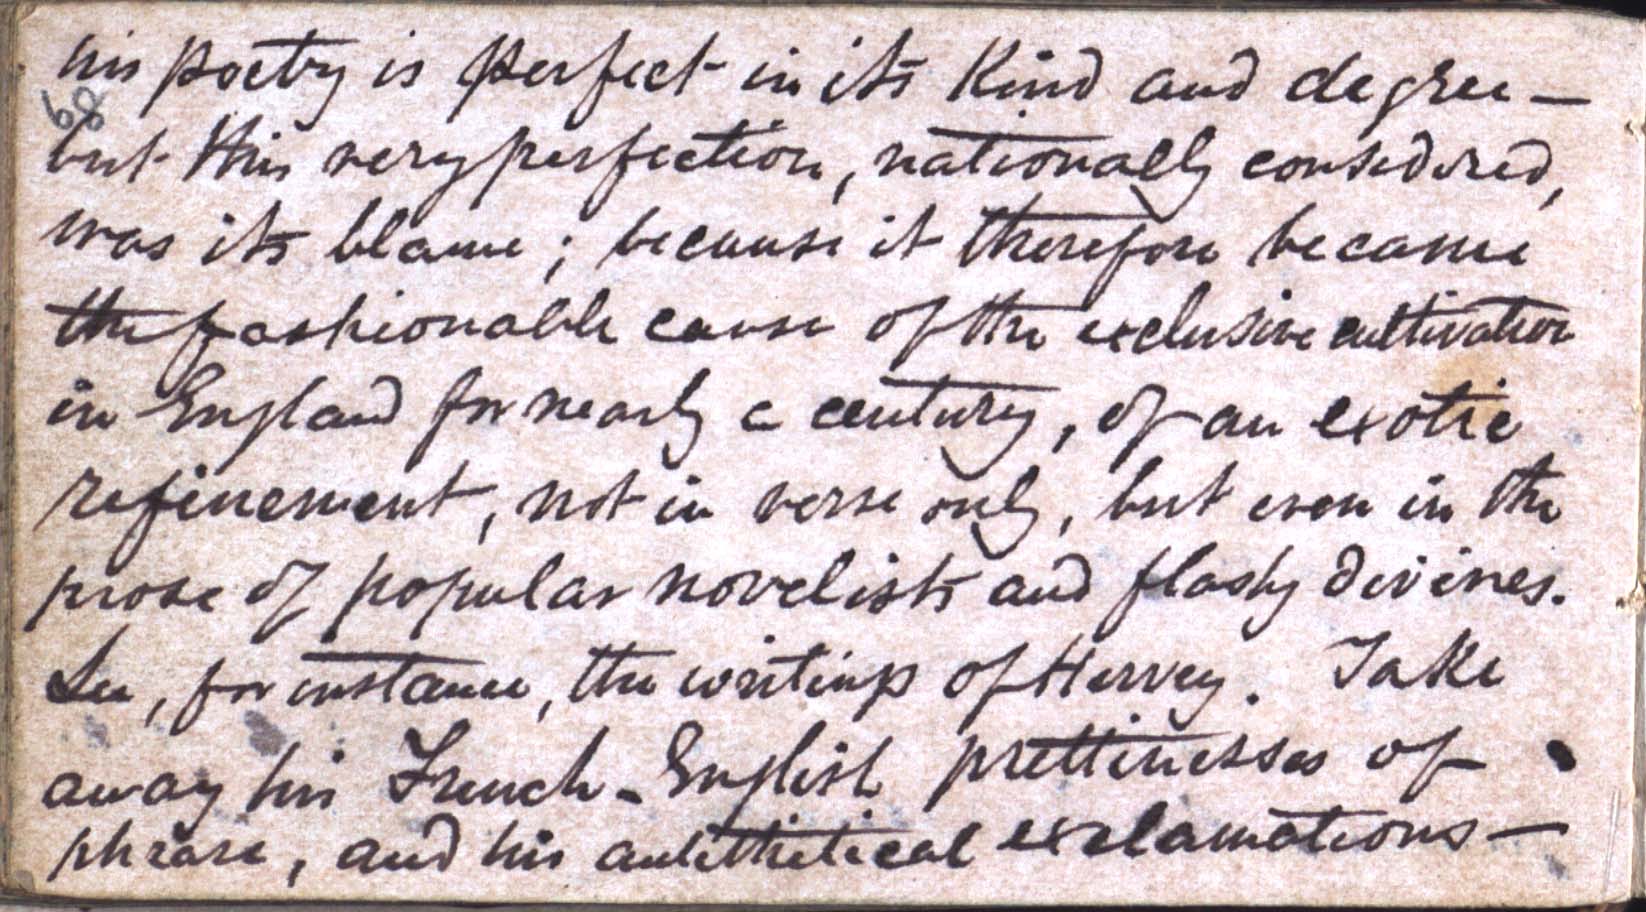 his poetry is perfect in its kind and degree —
68
but this very perfection, nationally considered,
was its blame; because it therefore became
the fashionable cause of the exclusive cultivation
in England for nearly a century, of an exotic
refinement, not in verse only, but even in the
prose of popular novelists and flashy divines.
See, for instance, the writings of Hervey. Take
away his French-English prettinesses of
phrase, and his antithetical exclamations —